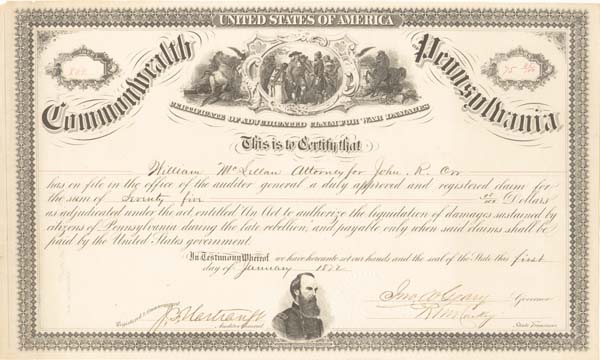 UNITED STATES OF AMERICA
Commonwealth Pennsylvania
75 00/100
CERTIFICATE OF ADJUDICATED CLAIM FOR WAR DAMAGES
This is to Certify that
William McLellan Attorney for John R. Orr
has on file in the office of the auditor general a duly approved and registered claim for the
sum of Seventy five Dollars
as adjudicated under the act entitled "An Act to authorize the liquidation of damages sustained by
citizens of Pennsylvania during the late rebellion," and payable only when said claims shall be
paid by the United States government.
In Testimony Whereof we have hereunto set our hands and the seal of the State this first
day of January 1872
J. F. Hartranft Jno W Geary Governor
Auditor General R W Mackey State Treasurer